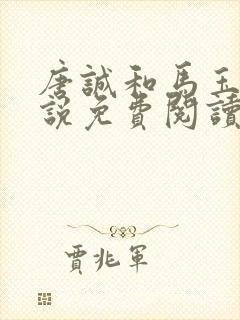 唐誠和馬玉
說免費閱讀
賈兆軍